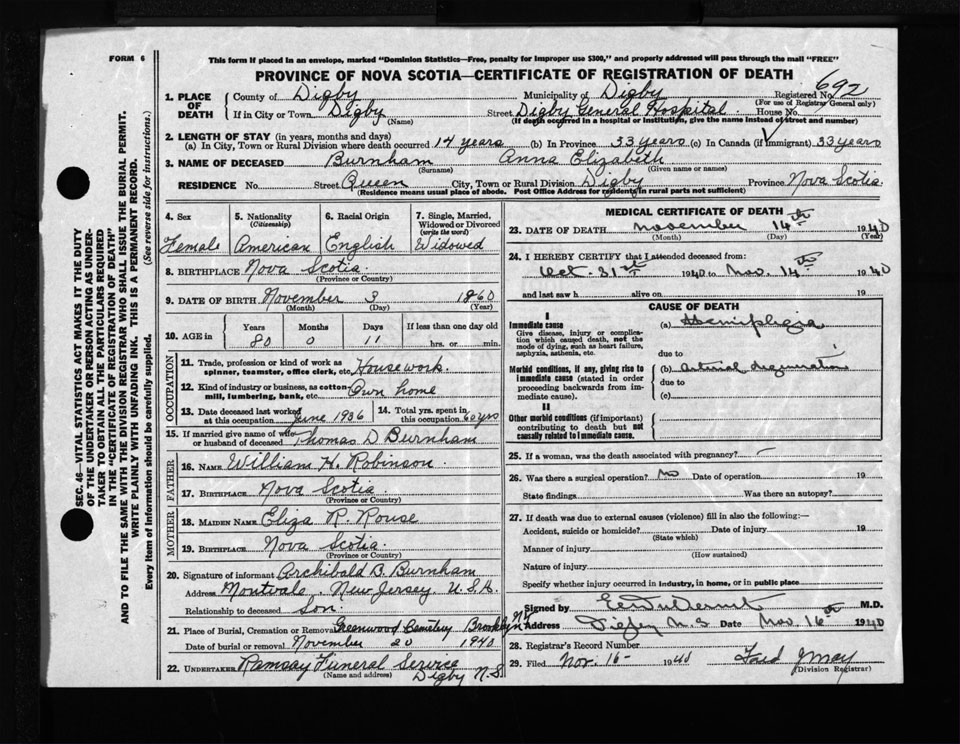 FORM 6
This form if placed in an envelope, marked "Dominion Statistics—Free, penalty for improper use $300," and properly addressed will pass through the mail "FREE"
PROVINCE OF NOVA SCOTIA—CERTIFICATE OF REGISTRATION OF DEATH
1. PLACE OF DEATH County of Digby Municipality of Digby Registered No. 692
(For use of Registrar General only)
If in City or Town Digby Street Digby General Hospital House No.
(Name) (If death occurred in a hospital or institution, give the name instead of street and number)
2. LENGTH OF STAY (in years, months and days)
(a) In City, Town or Rural Division where death occurred 14 years (b) In Province 33 years (c) In Canada (if immigrant) 33 years
3. NAME OF DECEASED Burnham Anna Elizabeth
(Surname) (Given name or names)
RESIDENCE No. Street Queen City, Town or Rural Division Digby Province Nova Scotia
(Residence means usual place of abode. Post Office Address for residents in rural parts not sufficient)
4. Sex Female
5. Nationality (Citizenship) American
6. Racial Origin English
7. Single, Married, Widowed or Divorced (write the word) Widowed
8. BIRTHPLACE Nova Scotia
(Province or Country)
9. DATE OF BIRTH November 3 1860
(Month) (Day) (Year)
10. AGE in Years Months Days If less than one day old
80 0 11 hrs. or min.
OCCUPATION
11. Trade, profession or kind of work as spinner, teamster, office clerk, etc. Housework.
12. Kind of industry or business, as cotton-mill, lumbering, bank, etc. Own home
13. Date deceased last worked at this occupation June 1936 14. Total yrs. spent in this occupation 60 yrs
15. If married give name of wife or husband of deceased Thomas D Burnham
FATHER
16. NAME William H. Robinson.
17. BIRTHPLACE Nova Scotia
(Province or Country)
MOTHER
18. MAIDEN NAME Eliza R. Rouse
19. BIRTHPLACE Nova Scotia.
(Province or Country)
20. Signature of informant Archibald B. Burnham
Address Montvale, New Jersey. U.S.A.
Relationship to deceased Son.
21. Place of Burial, Cremation or Removal Greenwood Cemetery Brooklyn NY
Date of burial or removal November 20 1940
22. UNDERTAKER Ramsay Funeral Service
(Name and address) Digby N.S.
MEDICAL CERTIFICATE OF DEATH
23. DATE OF DEATH November 14th 1940
(Month) (Day) (Year)
24. I HEREBY CERTIFY that I attended deceased from:
Oct. 31st 1940 to Nov. 14th 1940
and last saw h alive on 19
CAUSE OF DEATH
I
Immediate cause
Give disease, injury or complication which caused death, not the mode of dying, such as heart failure, asphyxia, asthenia, etc.
(a) Hemiplegia
due to
Morbid conditions, if any, giving rise to immediate cause (stated in order proceeding backwards from immediate cause).
(b) Arterial degeneration
due to
(c)
II
Other morbid conditions (if important) contributing to death but not causally related to immediate cause.
25. If a woman, was the death associated with pregnancy? —
26. Was there a surgical operation? No Date of operation 19
State findings Was there an autopsy?
27. If death was due to external causes (violence) fill in also the following:—
Accident, suicide or homicide? Date of injury 19
(State which)
Manner of injury
(How sustained)
Nature of injury
Specify whether injury occurred in industry, in home, or in public place
Signed by M.D.
Address Digby N.S Date Nov 16th 1940
28. Registrar's Record Number
29. Filed Nov. 16- 1940 Fred J May
(Division Registrar)
SEC. 46—VITAL STATISTICS ACT MAKES IT THE DUTY
OF THE UNDERTAKER OR PERSON ACTING AS UNDER-
TAKER TO OBTAIN ALL THE PARTICULARS REQUIRED
IN THE "CERTIFICATE OF REGISTRATION OF DEATH"
AND TO FILE THE SAME WITH THE DIVISION REGISTRAR WHO SHALL ISSUE THE BURIAL PERMIT.
WRITE PLAINLY WITH UNFADING INK. THIS IS A PERMANENT RECORD.
Every item of information should be carefully supplied. (See reverse side for instructions.)